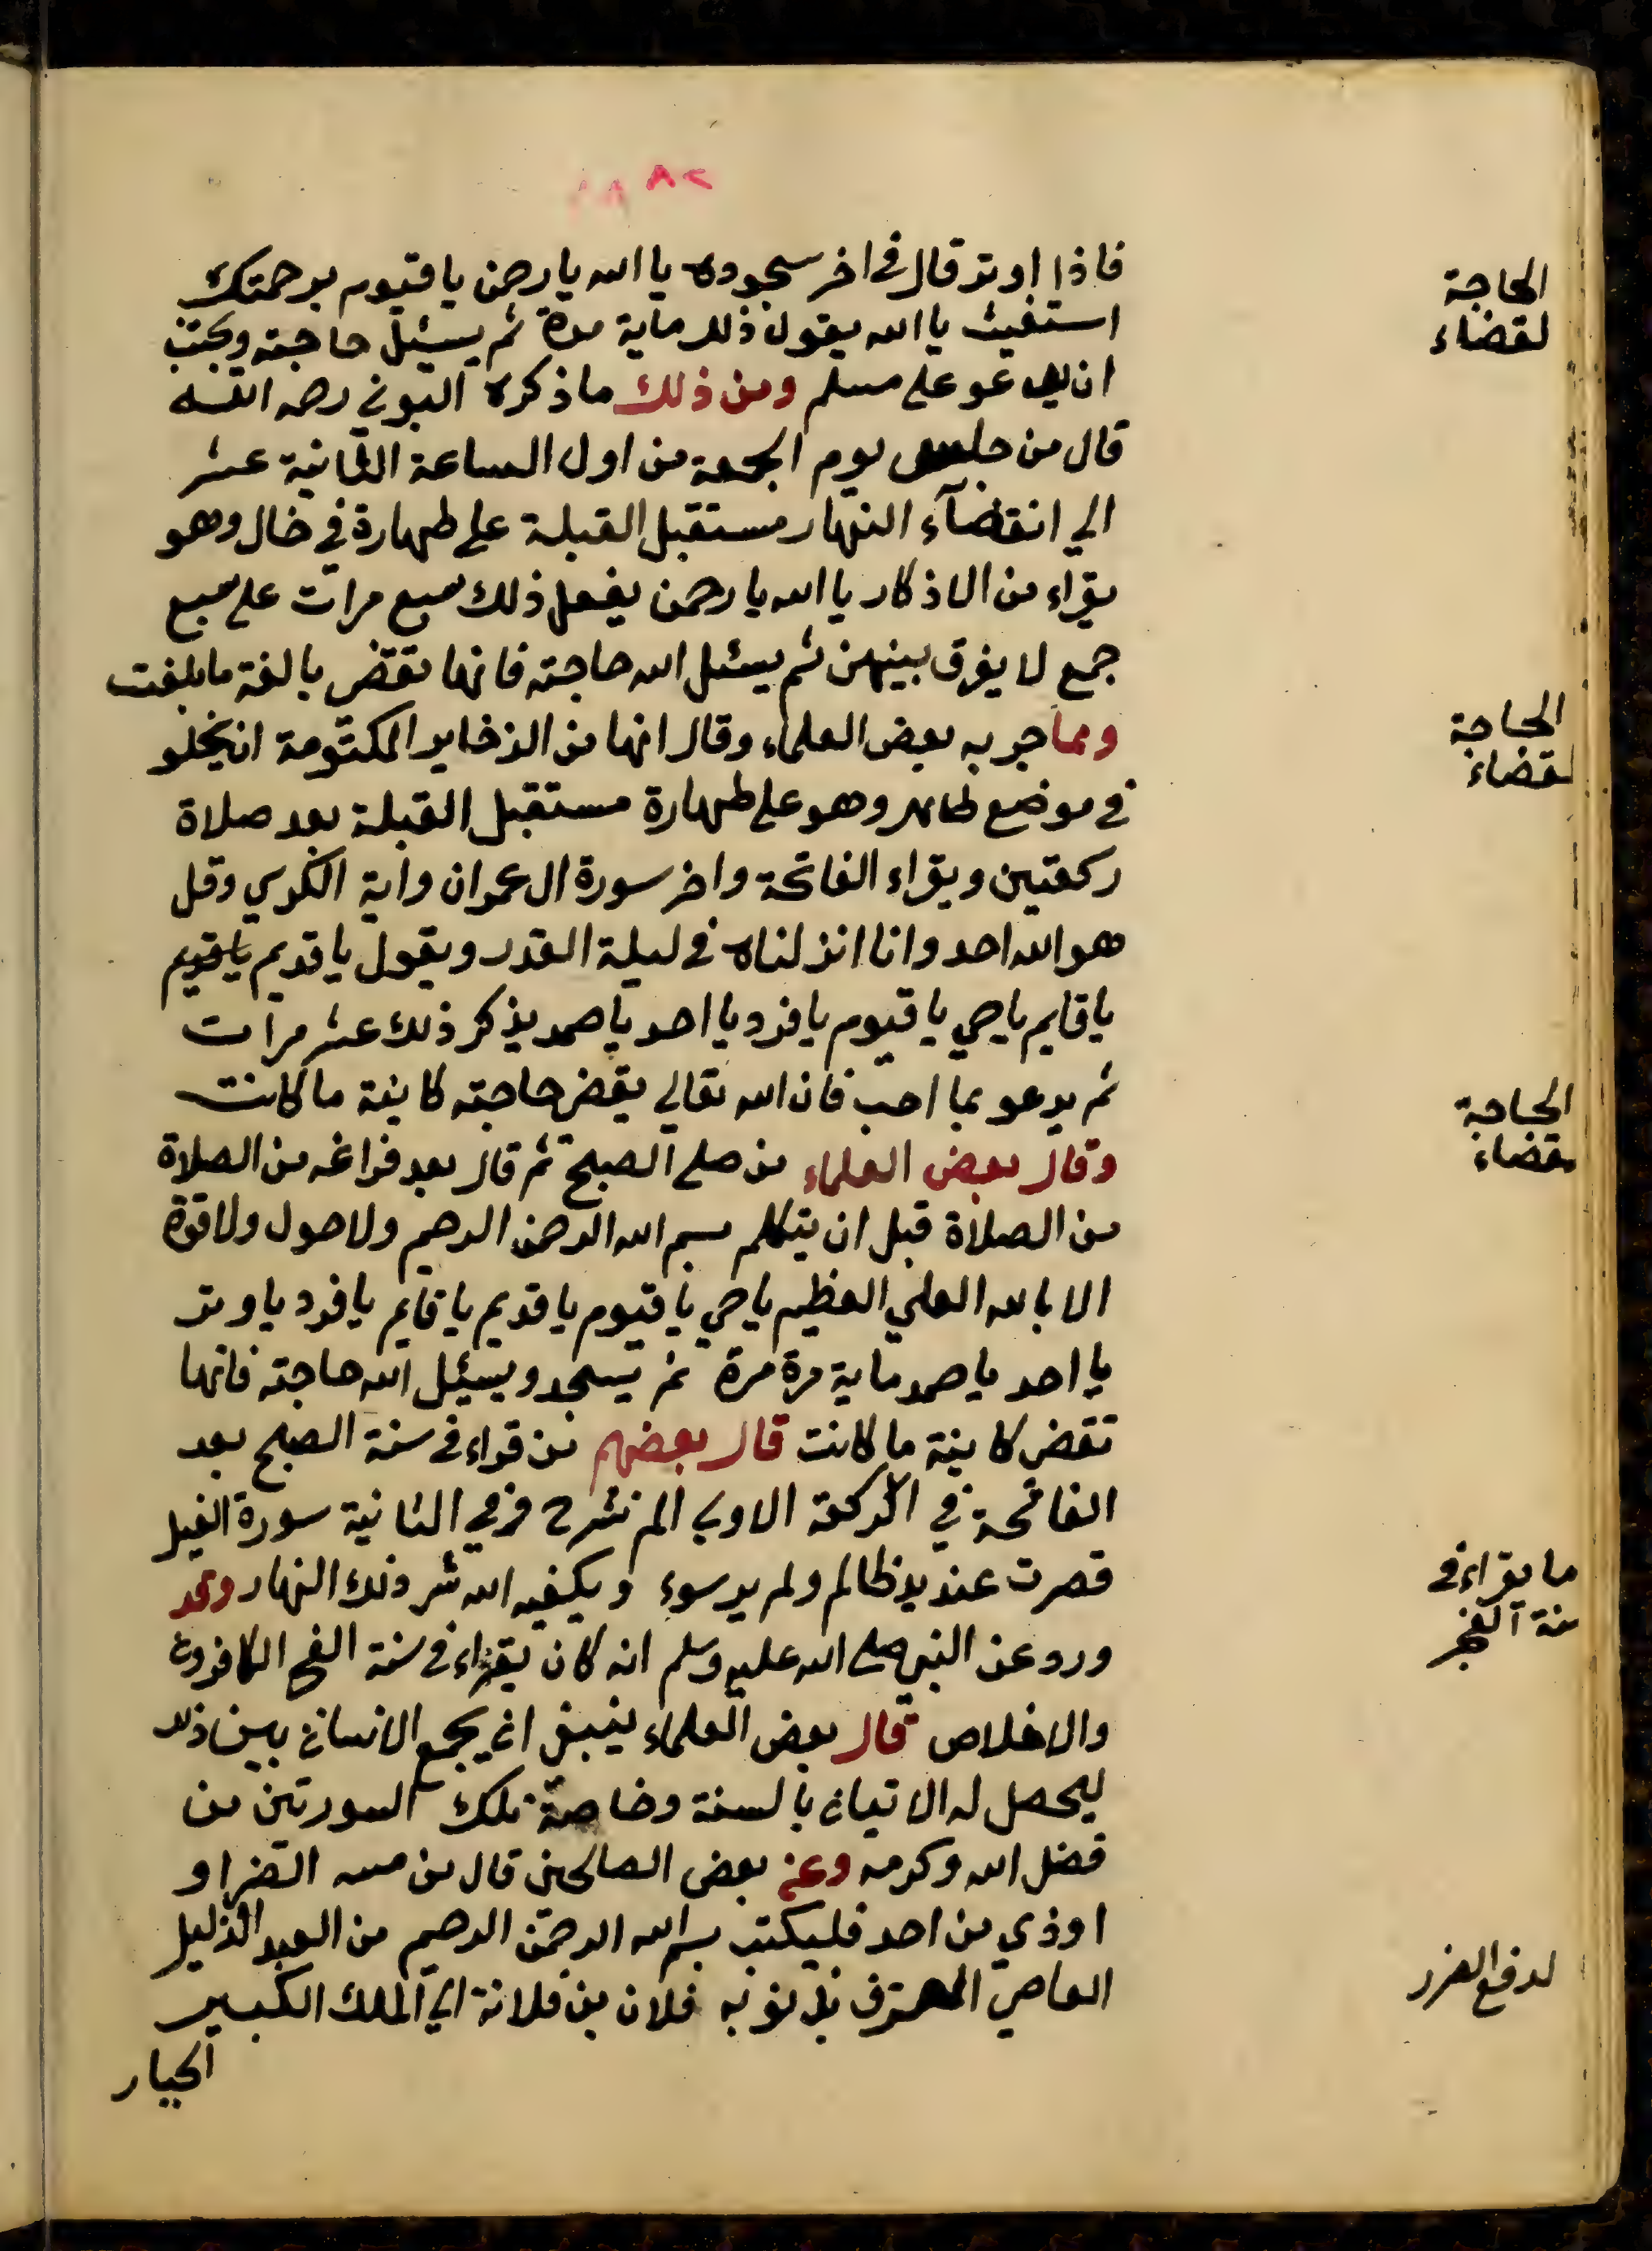 ٨٢
فاذا اوتر قال في اخر سجوده يا الله يا رحمن يا قيوم برحمتك
استغيث يا الله يقول ذلك ماية مرة ثم يسئل حاجته ويجتنب
ان يدعو على مسلم ومن ذلك ما ذكره البوني رحمه الله
قال من جلس يوم الجمعة من اول الساعة الثانية عشر
الي انقضآء النهار مستقبل القبلة على طهارة في خال وهو
يقراء من الاذكار يا الله يا رحمن يفعل ذلك سبع مرات على سبع
جمع لا يفرق بينهن ثم يسئل الله حاجته فانها تقضى بالغة ما بلغت
ومما جربه بعض العلماء وقال انها من الذخاير المكتومة ان يخلو
في موضع طاهر وهو على طهارة مستقبل القبلة بعد صلاة
ركعتين ويقراء الفاتحة واخر سورة ال عمران واية الكرسي وقل
هو الله احد وانا انزلناه في ليلة القدر ويقول يا قديم يا قويم
يا قايم يا حي يا قيوم يا فرد يا احد يا صمد يذكر ذلك عشر مرات
ثم يدعو بما احب فان الله تعالي يقضى حاجته كاينة ما كانت
وقال بعض العلماء من صلى الصبح ثم قال بعد فراغه من الصلاة
من الصلاة قبل ان يتكلم بسم الله الرحمن الرحيم ولا حول ولا قوة
الا بالله العلي العظيم يا حي يا قيوم يا قديم يا قايم يا فرد يا وتر
يا احد يا صمد ماية مرة مرة ثم يسجد ويسئل الله حاجته فانها
تقضى كاينة ما كانت قال بعضهم من قراء في سنة الصبح بعد
الفاتحة في الركعة الاولى الم نشرح وفي الثانية سورة الفيل
قصرت عند يد ظالم ولم ير سوء ويكفيه الله شر ذلك النهار وقد
ورد عن النبي صلى الله عليه وسلم انه كان يقراء في سنة الفجر الكافرون
والاخلاص قال بعض العلماء ينبغي ان يجمع الانسان بين ذلك
ليحصل له الاتيان بالسنة وخاصة تلك السورتين من
فضل الله وكرمه وعن بعض الصالحين قال من مسه الضر او
اوذي من احد فليكتب بسم الله الرحمن الرحيم من العبد الذليل
العاصي المعترف بذنوبه فلان بن فلانة الي الملك الكبير
الجبار
الحاجة
لقضاء
الحاجة
لقضاء
الحاجة
لقضاء
ما يقراء في
سنة الفجر
لدفع الضرر